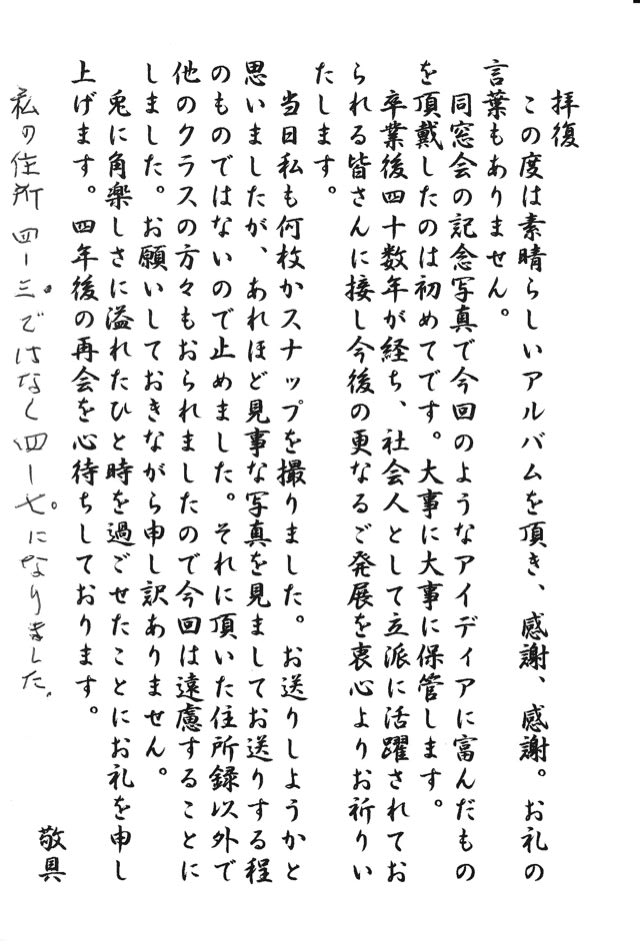 拝復
この度は素晴らしいアルバムを頂き、感謝、感謝。お礼の
言葉もありません。
同窓会の記念写真で今回のようなアイディアに富んだもの
を頂戴したのは初めてです。大事に大事に保管します。
卒業後四十数年が経ち、社会人として立派に活躍されてお
られる皆さんに接し今後の更なるご発展を衷心よりお祈りい
たします。
当日私も何枚かスナップを撮りました。お送りしようかと
思いましたが、あれほど見事な写真を見ましてお送りする程
のものではないので止めました。それに頂いた住所録以外で
他のクラスの方々もおられましたので今回は遠慮することに
しました。お願いしておきながら申し訳ありません。
兎に角楽しさに溢れたひと時を過ごせたことにお礼を申し
上げます。四年後の再会を心待ちしております。
敬具
私の住所四ー三。ではなく四ー七。になりました。